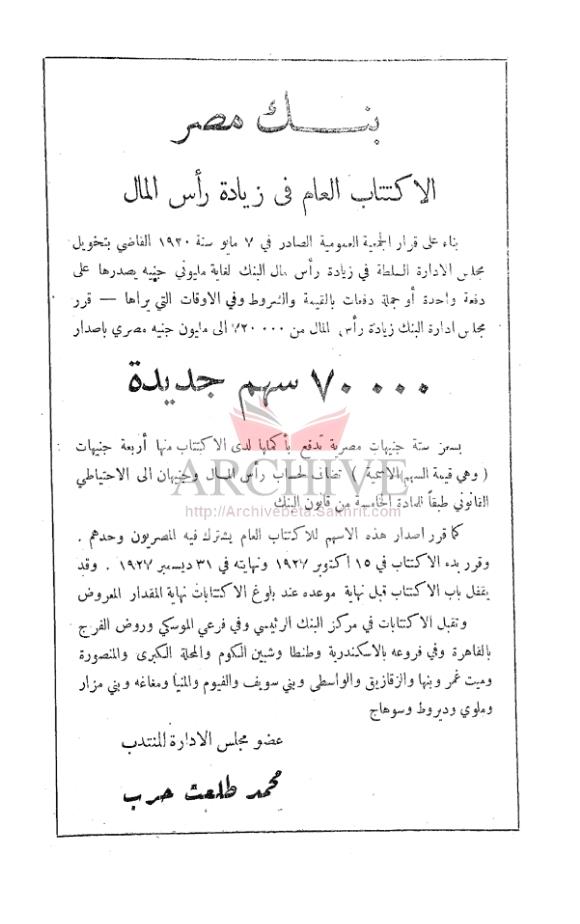 بنك مصر
الاكتتاب العام فى زيادة رأس المال
بناء على قرار الجمعية العمومية الصادر في ٧ مايو سنة ١٩٢٠ القاضي بتخويل
مجلس الادارة السلطة في زيادة رأس مال البنك لغاية مليوني جنيه يصدرها على
دفعة واحدة أو جملة دفعات بالقيمة والشروط وفي الاوقات التي يراها — قرر
مجلس ادارة البنك زيادة رأس المال من الى مليون جنيه مصري باصدار
٧٠٠٠٠ سهم جديدة
بسعر ستة جنيهات مصرية تدفع بأكملها لدى الاكتتاب منها أربعة جنيهات
( وهي قيمة السهم الاسمية ) تضاف لحساب رأس المال وجنيهان الى الاحتياطي
القانوني طبقاً للمادة الخامسة من قانون البنك
ARCHIVE
http://Archivebeta.Sakhrit.com
كما قرر اصدار هذه الاسهم للاكتتاب العام يشترك فيه المصريون وحدهم .
وقرر بدء الاكتتاب في ١٥ اكتوبر ١٩٢٧ ونهايته في ٣١ ديسمبر ١٩٢٧ . وقد
يقفل باب الاكتتاب قبل نهاية موعده عند بلوغ الاكتتابات نهاية المقدار المعروض
وتقبل الاكتتابات في مركز البنك الرئيسي وفي فرعي الموسكي وروض الفرج
بالقاهرة وفي فروعه بالاسكندرية وطنطا وشبين الكوم والمحلة الكبرى والمنصورة
وميت غمر وبنها والزقازيق والواسطى وبني سويف والفيوم والمنيا ومغاغه وبني مزار
وملوي وديروط وسوهاج
عضو مجلس الادارة المنتدب
محمد طلعت حرب